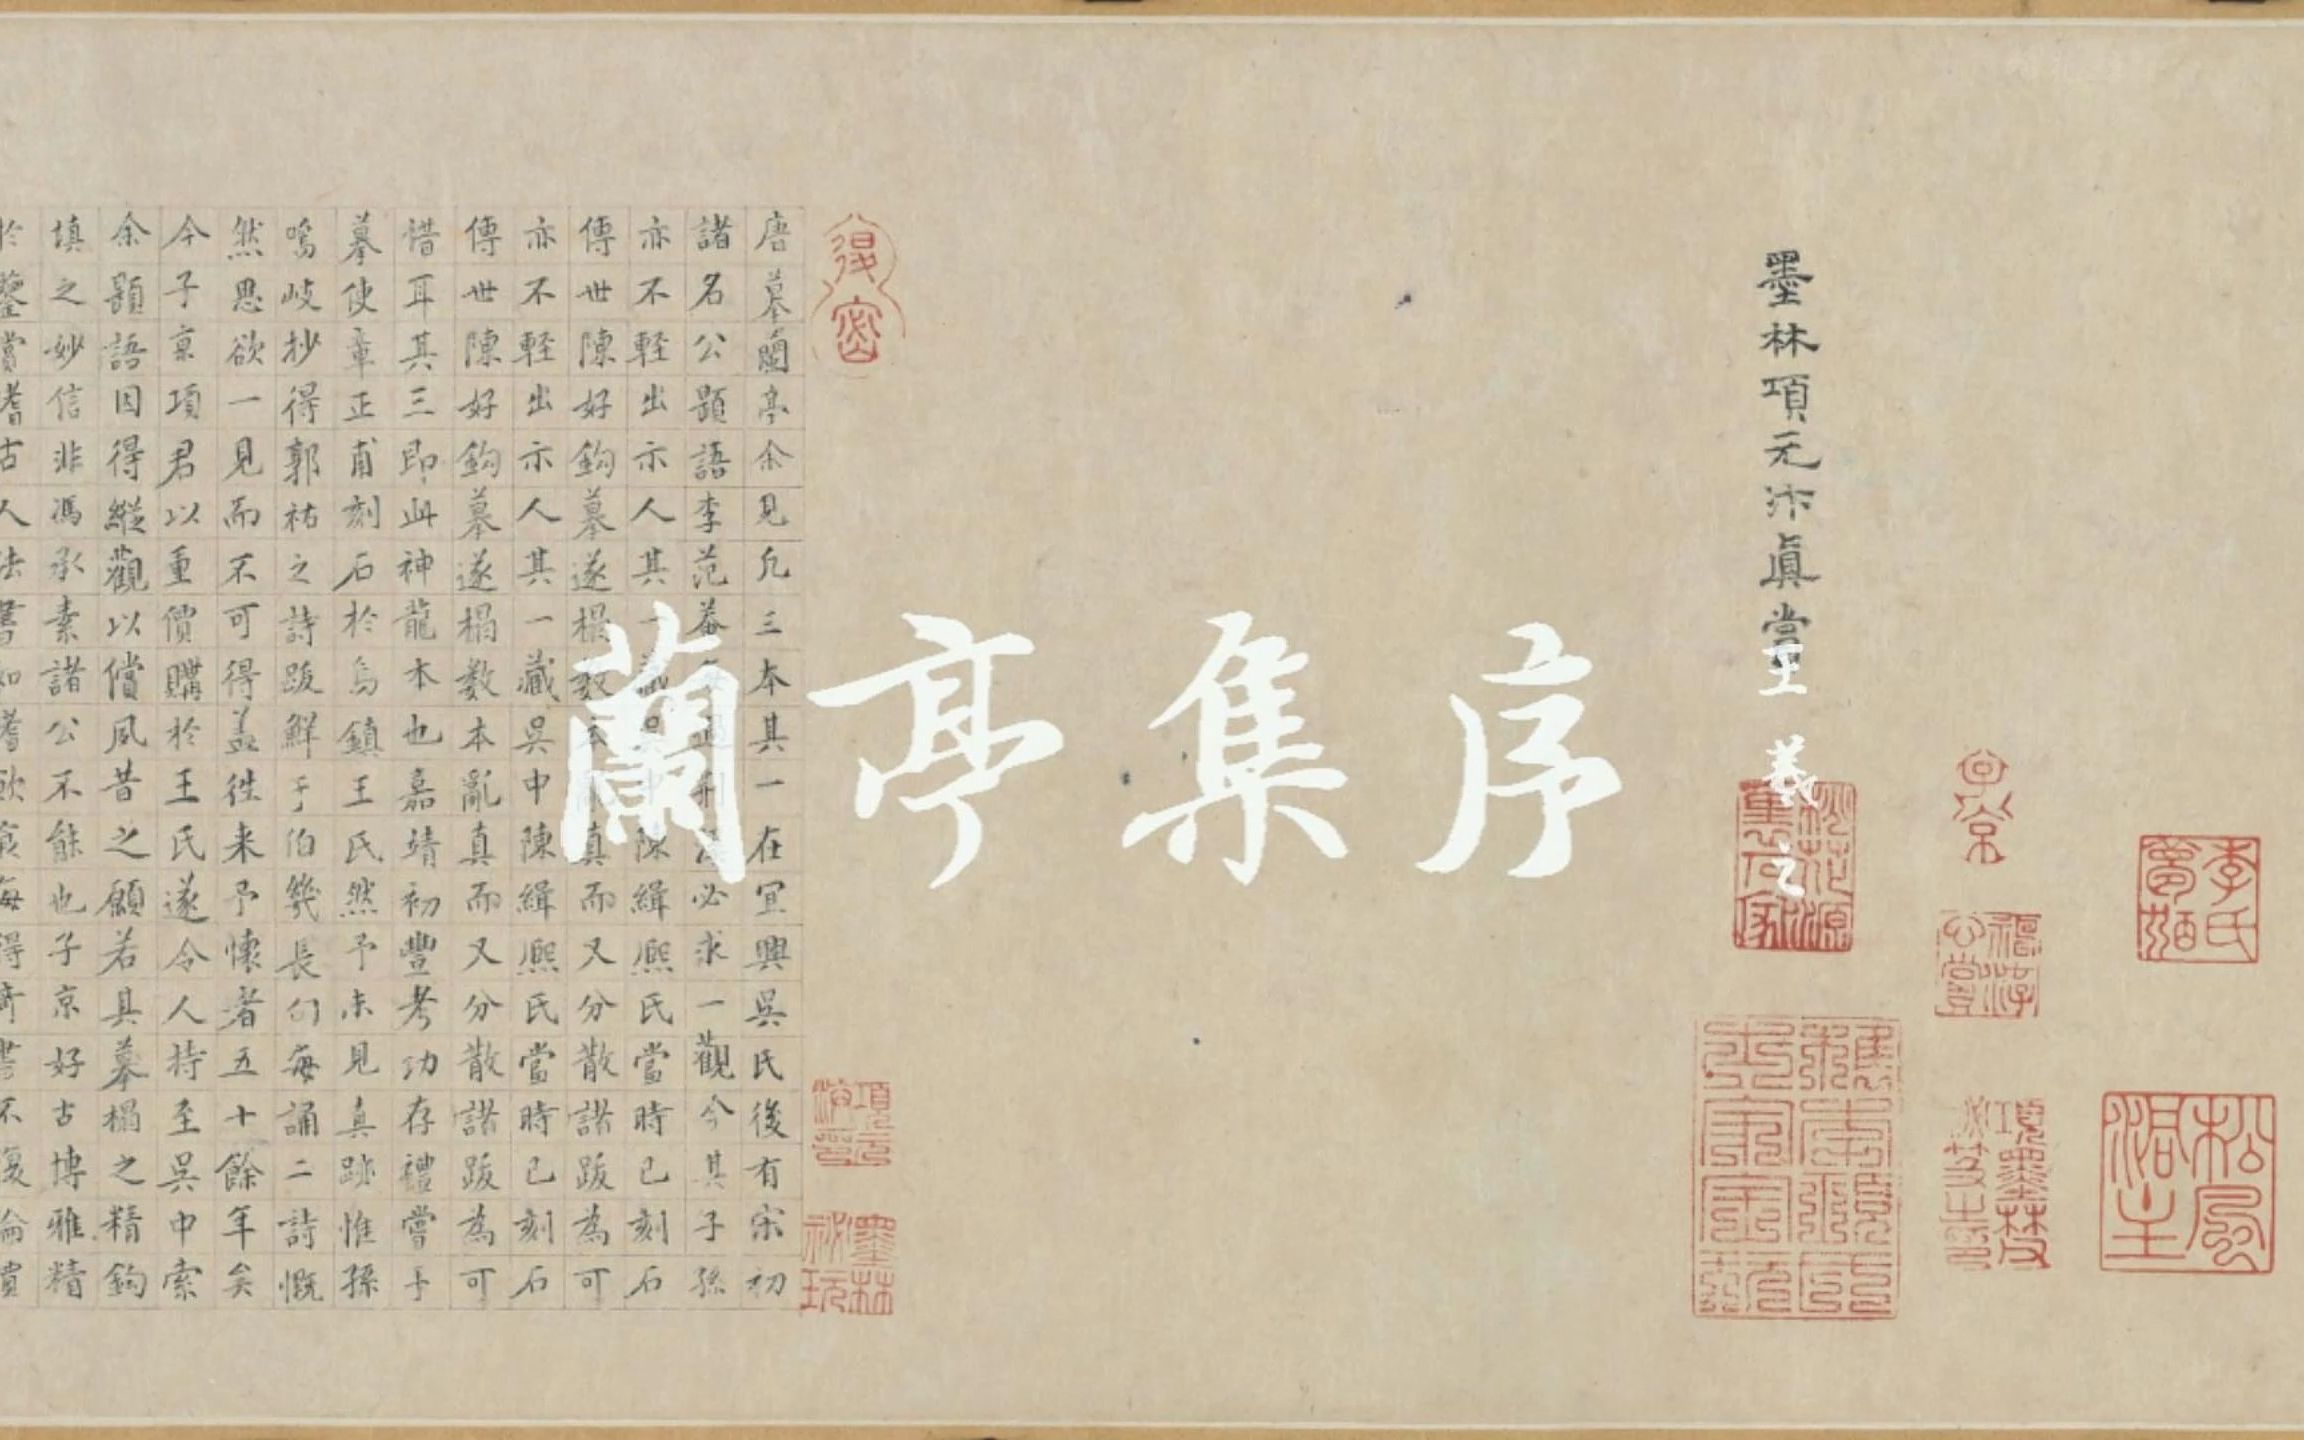 墨林項元汴真賞
王羲之
蘭亭集序
墨林秘玩
唐摹蘭亭余見凡三本其一在宜興吳氏後有宋初
諸名公題語李范菴每過荊溪必求一觀今其子孫
亦不軽出示人其一藏吳中陳緝熈氏當時已刻石
傳世陳好鈎摹遂榻数本亂真而又分散諸跋為可
亦不軽出示人其一藏吳中陳緝熈氏當時已刻石
傳世陳好鈎摹遂榻数本亂真而又分散諸跋為可
惜耳其三即此神龍本也嘉靖初豐考功存禮嘗手
摹使章正甫刻石於烏鎮王氏然予未見真跡惟孫
鳴岐抄得郭祐之詩跋鮮于伯幾長句每誦二詩慨
然思欲一見而不可得盖往来予懷者五十餘年矣
今子稟項君以重價購於王氏遂令人持至吳中索
余題語因得縱觀以償夙昔之願若其摹榻之精鈎
填之妙信非馮承素諸公不能也子京好古博雅精
於鑒賞嗜古人法書如嗜飲食每得奇書不復論價